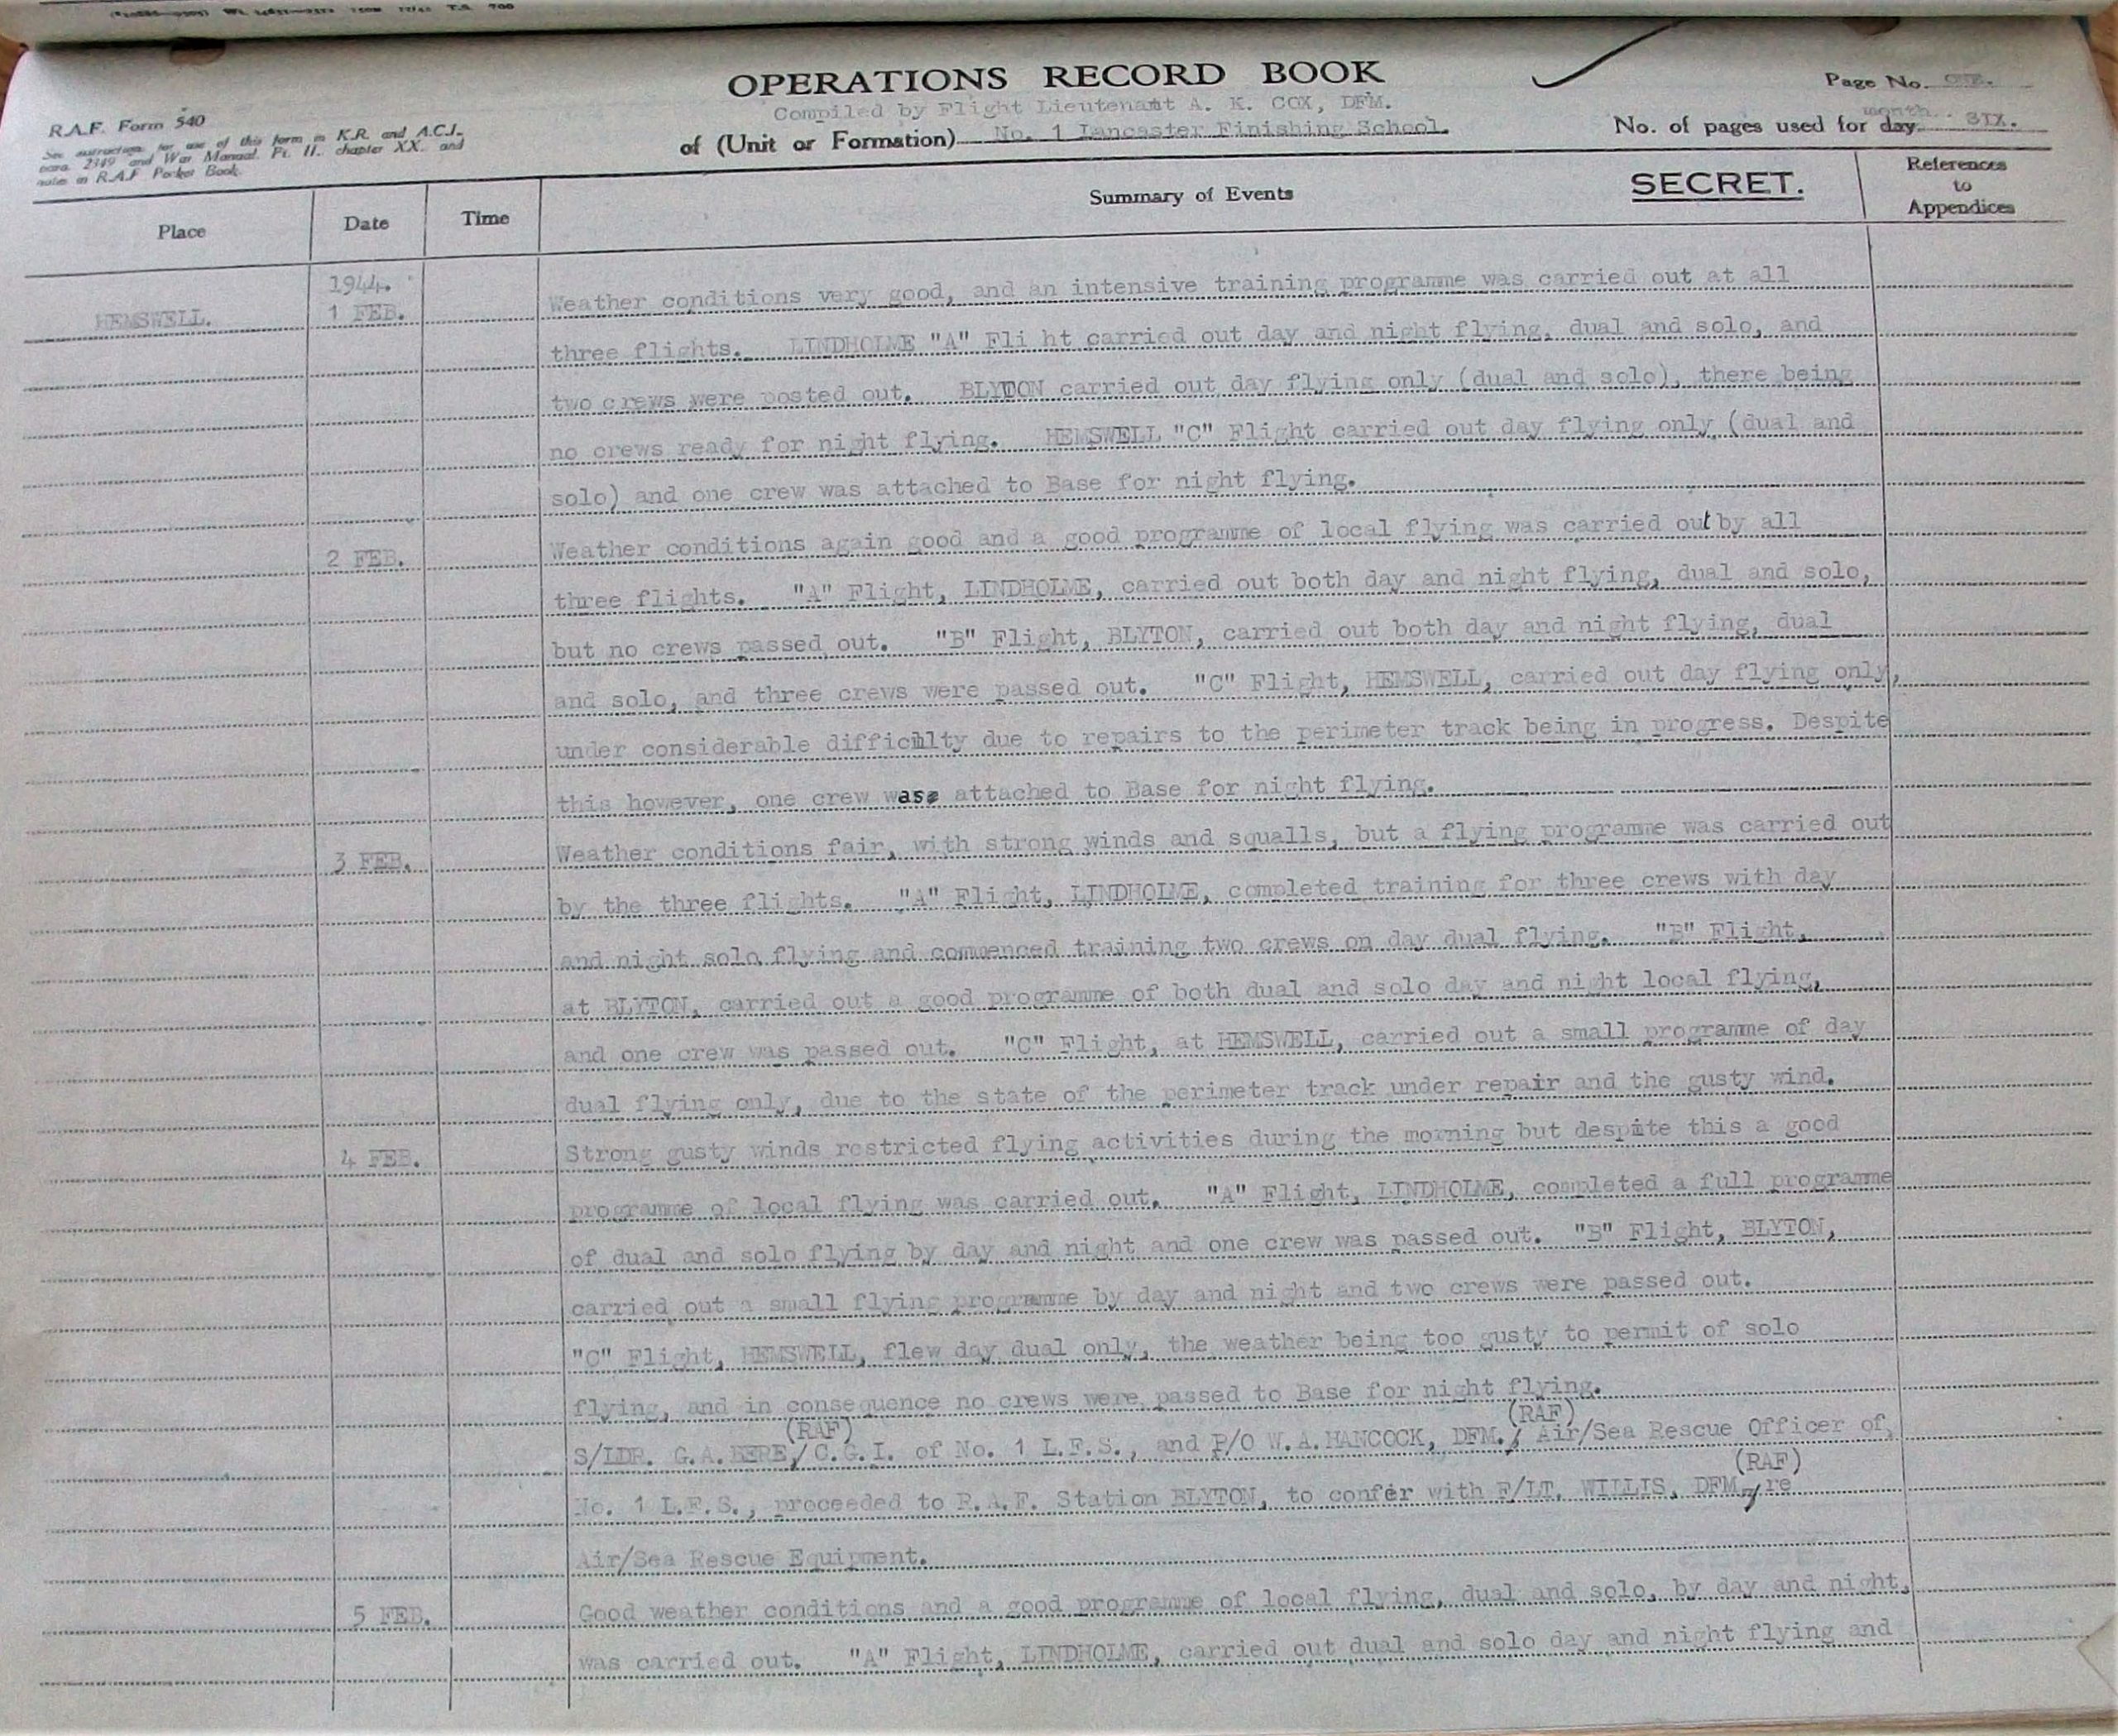 OPERATIONS RECORD BOOK
Page No. ONE.
R.A.F. Form 540
Compiled by Flight Lieutenant A. K. COX, DFM.
month
See instructions for use of this form in K.R. and A.C.I.,
para. 2349 and War Manual, Pt. II., chapter XX., and
notes in R.A.F. Pocket Book.
of (Unit or Formation) No. 1 Lancaster Finishing School.
No. of pages used for day SIX.
Place
Date
Time
Summary of Events
SECRET.
References
to
Appendices
1944.
HEMSWELL. 1 FEB. Weather conditions very good, and an intensive training programme was carried out at all
three flights. LINDHOLME "A" Fli ht carried out day and night flying, dual and solo, and
two crews were posted out. BLYTON carried out day flying only (dual and solo), there being
no crews ready for night flying. HEMSWELL "C" Flight carried out day flying only (dual and
solo) and one crew was attached to Base for night flying.
2 FEB. Weather conditions again good and a good programme of local flying was carried out by all
three flights. "A" Flight, LINDHOLME, carried out both day and night flying, dual and solo,
but no crews passed out. "B" Flight, BLYTON, carried out both day and night flying, dual
and solo, and three crews were passed out. "C" Flight, HEMSWELL, carried out day flying only,
under considerable difficulty due to repairs to the perimeter track being in progress. Despite
this however, one crew was attached to Base for night flying.
3 FEB. Weather conditions fair, with strong winds and squalls, but a flying programme was carried out
by the three flights. "A" Flight, LINDHOLME, completed training for three crews with day
and night solo flying and commenced training two crews on day dual flying. "B" Flight,
at BLYTON, carried out a good programme of both dual and solo day and night local flying,
and one crew was passed out. "C" Flight, at HEMSWELL, carried out a small programme of day
dual flying only, due to the state of the perimeter track under repair and the gusty wind.
4 FEB. Strong gusty winds restricted flying activities during the morning but despite this a good
programme of local flying was carried out. "A" Flight, LINDHOLME, completed a full programme
of dual and solo flying by day and night and one crew was passed out. "B" Flight, BLYTON,
carried out a small flying programme by day and night and two crews were passed out.
"C" Flight, HEMSWELL, flew day dual only, the weather being too gusty to permit of solo
flying, and in consequence no crews were passed to Base for night flying.
(RAF) (RAF)
S/LDR. G.A.BERE/ C.G.I. of No. 1 L.F.S., and P/O W.A.HANCOCK, DFM./ Air/Sea Rescue Officer of,
(RAF)
No. 1 L.F.S., proceeded to R.A.F. Station BLYTON, to confer with F/LT. WILLIS, DFM, re
Air/Sea Rescue Equipment.
5 FEB. Good weather conditions and a good programme of local flying, dual and solo, by day and night,
was carried out. "A" Flight, LINDHOLME, carried out dual and solo day and night flying and